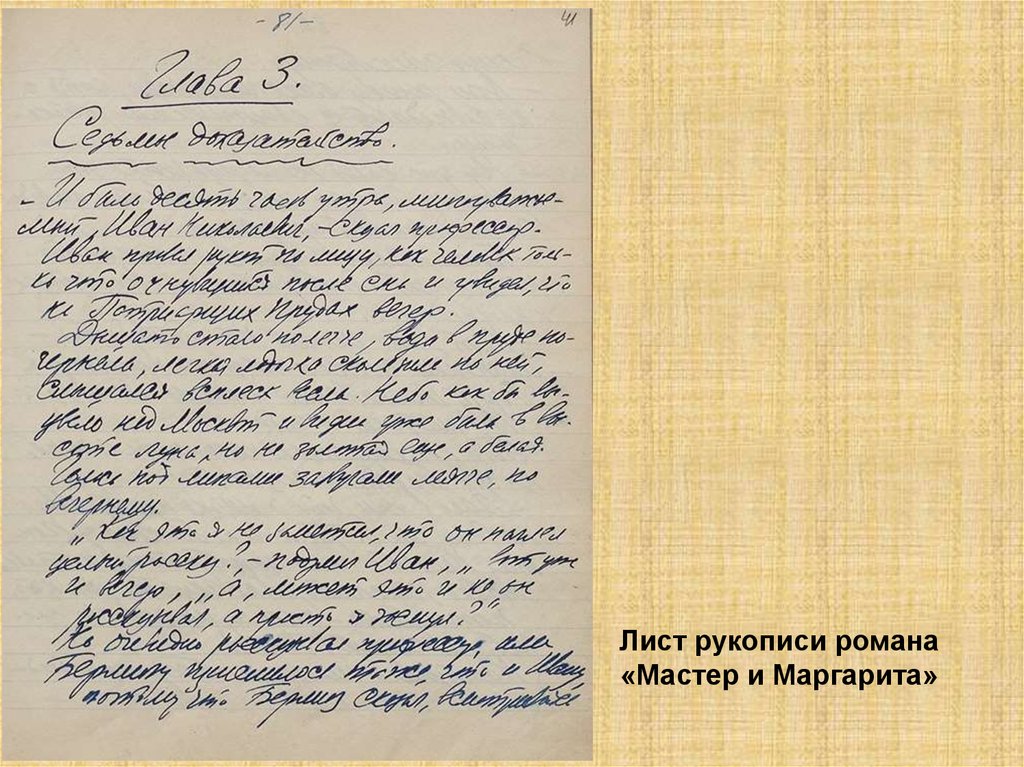 - 81 -
41
Глава 3.
Седьмое доказательство.
- И было десять часов утра, многоуважае-
мый Иван Николаевич, - сказал профессор.
Иван провел рукой по лицу, как человек толь-
ко что очнувшийся после сна и увидел, что
на Патриарших Прудах вечер.
Дышать стало полегче, вода в пруде по-
чернела, легкая лодочка скользила по ней,
слышался всплеск весла. Небо как бы вы-
цвело над Москвой и видна уже была в вы-
соте луна, но не золотая еще, а белая.
под липами звучали мягче, по
вечернему.
„Как это я не заметил, что он наплел
целый рассказ?, - подумал Иван, „ вот уже
и вечер, „ а, может это и не он
рассказывал, а просто я заснул?“
Но очевидно рассказывал профессор, или
Берлиозу приснилось то же, что и Ивану,
потому что Берлиоз сказал, всматриваясь
Лист рукописи романа
«Мастер и Маргарита»